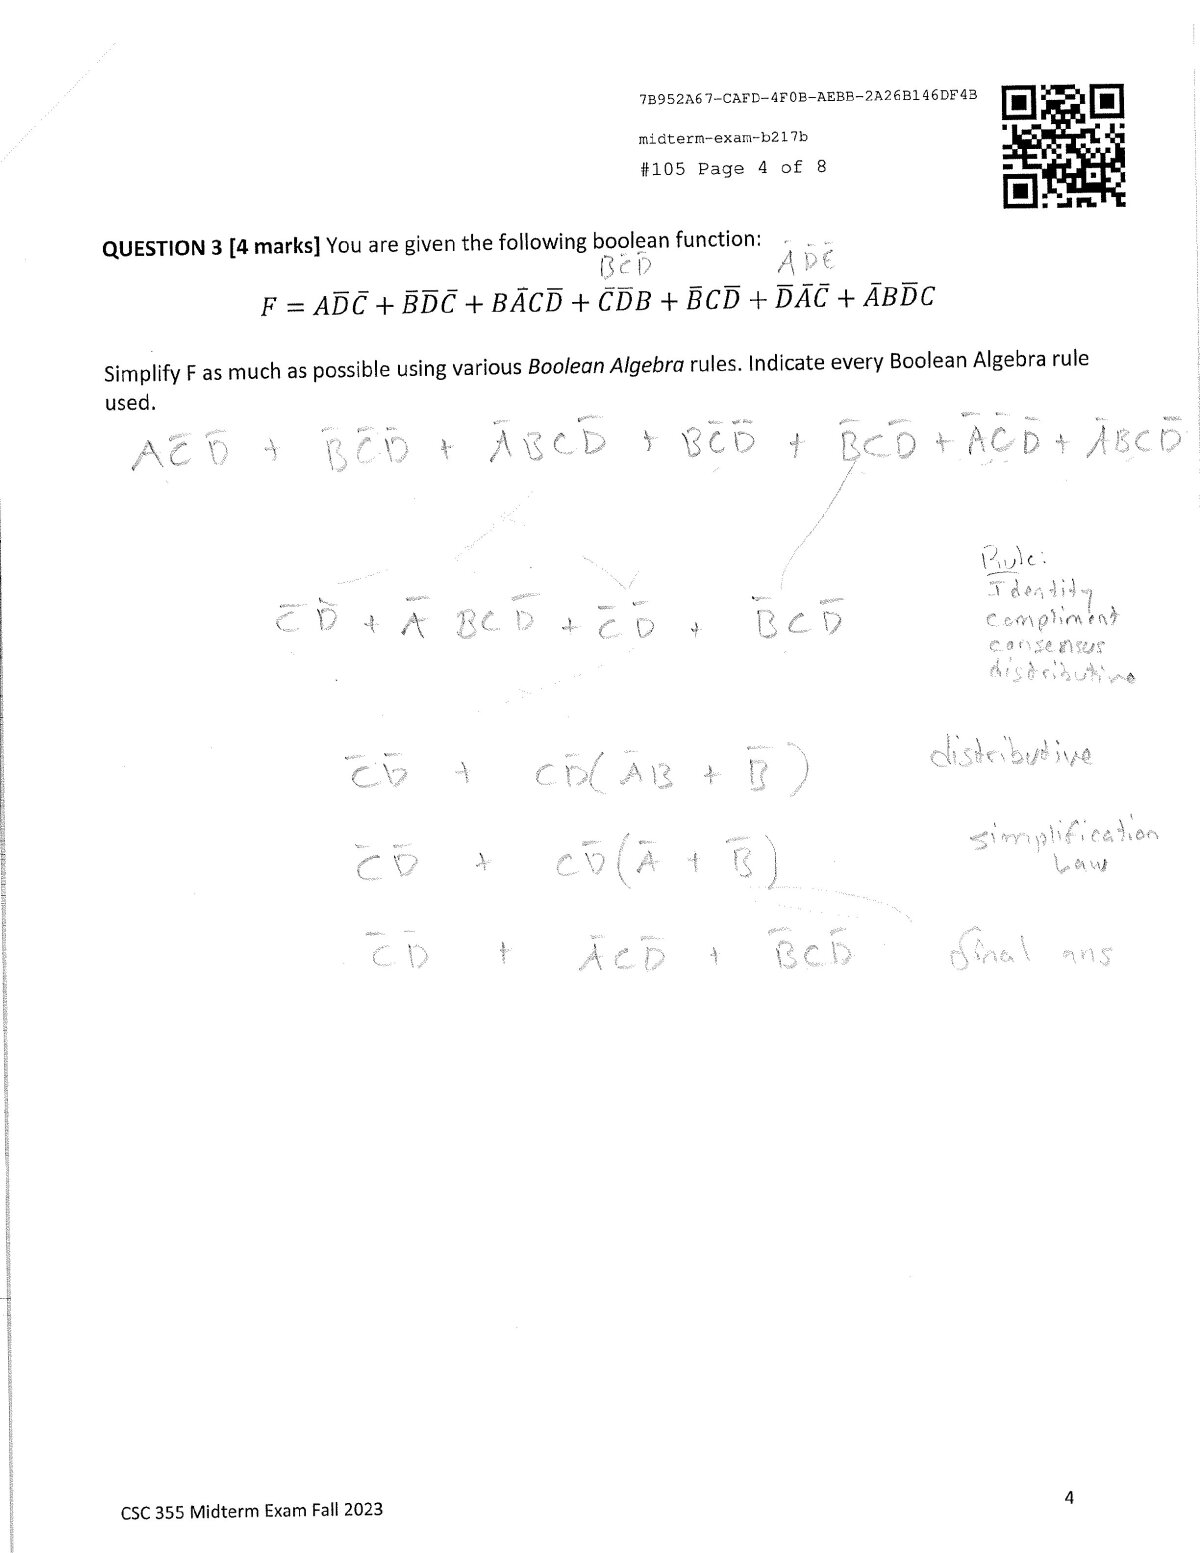 7B952A67-CAFD-4F0B-AEBB-2A26B146DF4B
midterm-exam-b217b
#105 Page 4 of 8
QUESTION 3 [4 marks] You are given the following boolean function:
BC̄D̄ ĀD̄C̄
F = AD̄C̄ + B̄D̄C̄ + BĀCD̄ + C̄D̄B + B̄CD̄ + D̄ĀC̄ + ĀBD̄C
Simplify F as much as possible using various Boolean Algebra rules. Indicate every Boolean Algebra rule
used.
AC̄D̄ + B̄C̄D̄ + ĀBCD̄ + BC̄D̄ + B̄CD̄ + ĀC̄D̄ + ĀBCD̄
Rule:
Identity
compliment
consensus
distributive
C̄D̄ + ĀBCD̄ + C̄D̄ + B̄CD̄
C̄D̄ + CD̄(ĀB + B̄) distributive
C̄D̄ + CD̄(Ā + B̄) simplification
Law
C̄D̄ + ĀCD̄ + B̄CD̄ final ans
CSC 355 Midterm Exam Fall 2023
4